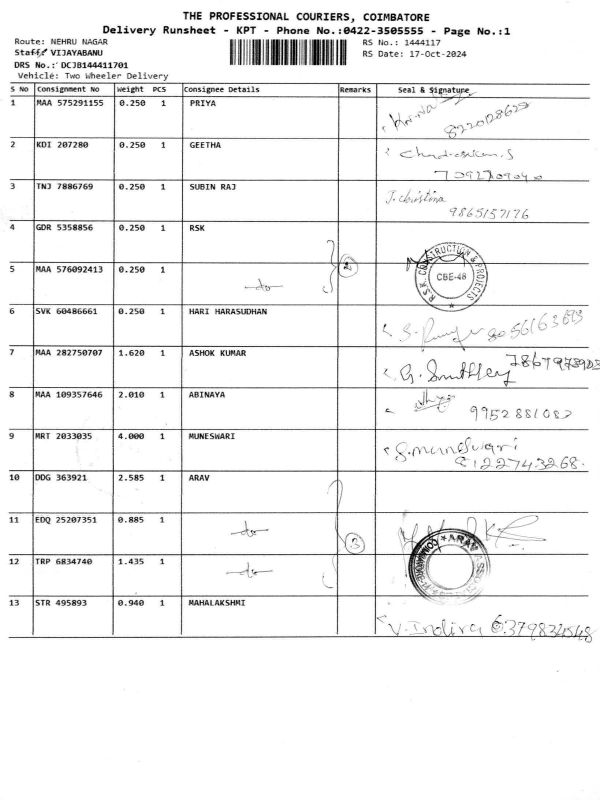 THE PROFESSIONAL COURIERS, COIMBATORE
Delivery Runsheet - KPT - Phone No.:0422-3505555 - Page No.:1
Route: NEHRU NAGAR RS No.: 1444117
Staff: VIJAYABANU RS Date: 17-Oct-2024
DRS No.: DCJB144411701
Vehicle: Two Wheeler Delivery
S No Consignment No Weight PCS Consignee Details Remarks Seal & Signature
1 MAA 575291155 0.250 1 PRIYA
2 KDI 207280 0.250 1 GEETHA
3 TNJ 7886769 0.250 1 SUBIN RAJ J. christina
9865157176
4 GDR 5358856 0.250 1 RSK R.S.K. CONSTRUCTION & PROJECTS
CBE-48
5 MAA 576092413 0.250 1 -do- 2
6 SVK 60486661 0.250 1 HARI HARASUDHAN
7 MAA 282750707 1.620 1 ASHOK KUMAR
8 MAA 109357646 2.010 1 ABINAYA
9 MRT 2033035 4.000 1 MUNESWARI S.muneswari
8122743268.
10 DDG 363921 2.585 1 ARAV
11 EDQ 25207351 0.885 1 -do- 3
12 TRP 6834740 1.435 1 -do- ARAV
13 STR 495893 0.940 1 MAHALAKSHMI V. Indira 6379834548